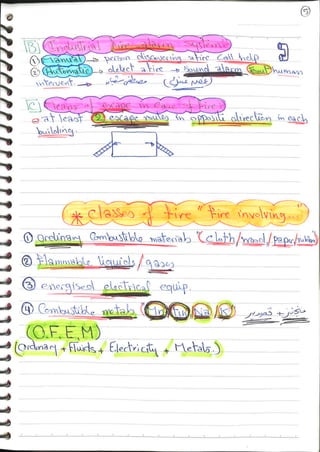 9
[B] Industrial fire alarm systems
① Manual → person discovering a fire call help
② Automatic → detect a fire → sound alarm without human
intervent.
[C] Means of escape in case of fire
at least 2 escape routes in opposite direction in each
building.
* Classes of fire "fire involving"
① Ordinary Combustible materials (cloth/wood/paper/rubber)
② Flammable liquids / gases
③ energised electrical equip.
④ Combustible metals Na K
(O.F.E.M)
(Ordinary + Fluids + Electricity + Metals.)